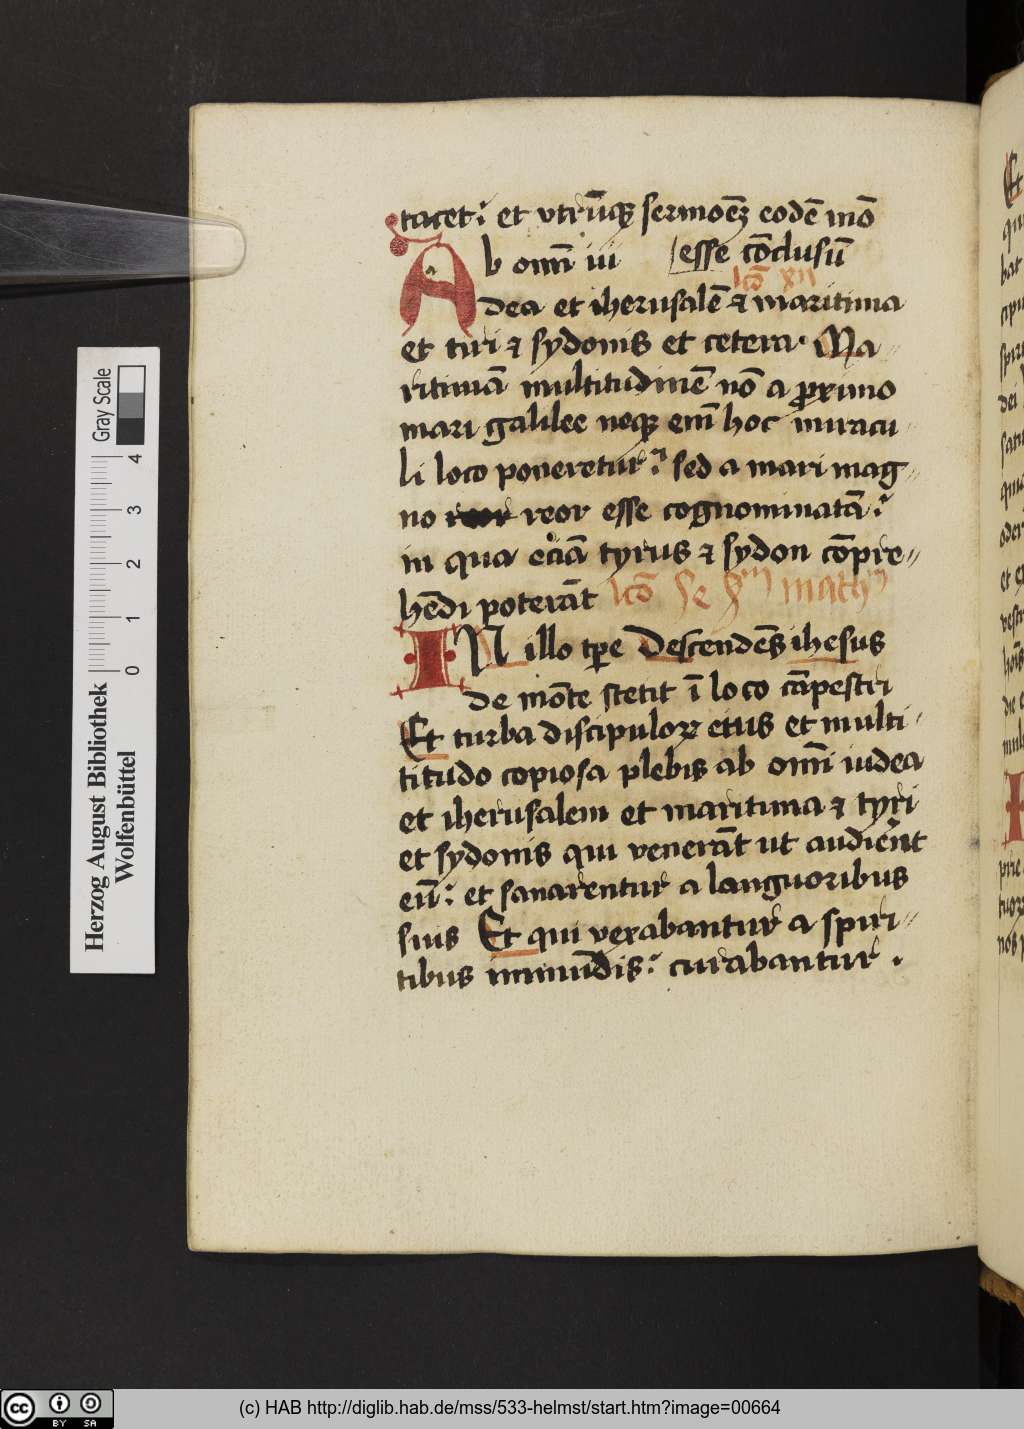 tacet: et vtrūq₃ sermoēz eodē mō
Ab omī iu esse cōclusū
lcō xii
dea et iherusalē ⁊ maritima
et tiri ⁊ sydonis et cetera. Ma
ritimā multitudinē nō a ꝓximo
mari galilee neq₃ em̄ hoc miracu
li loco poneretur: sed a mari mag
no reor esse cognominatā:
in qua eciā tyrus ⁊ sydon cōpre
hēdi poterāt lcō Se
IN illo tꝑe Descendēs ihesus
de mōte stetit ī loco cāpestri
Et turba discipuloꝝ eius et multi
titudo copiosa plebis ab omī iudea
et iherusalem et maritima ⁊ tyri
et sydonis qui venerāt ut audirēt
eū: et sanarentur a languoribus
suis Et qui vexabantur a spiri
tibus inmūdis: curabantur .
Gray Scale
0 1 2 3 4
Herzog August Bibliothek
Wolfenbüttel
(c) HAB http://diglib.hab.de/mss/533-helmst/start.htm?image=00664
cc BY SA